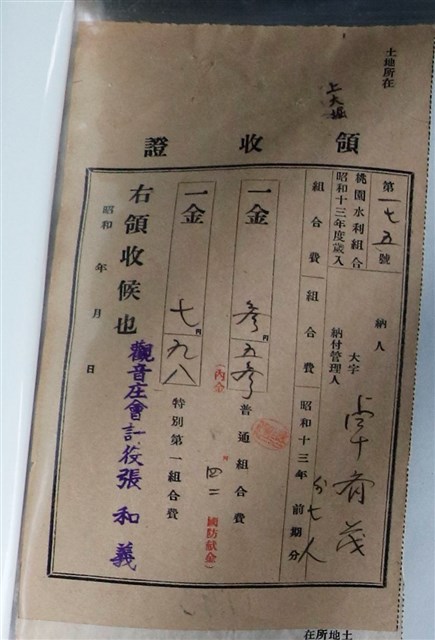 土地所在
上大堀
領收證
第一七五號
桃園水利組合
昭和十三年度歲入
納人
大字
納付管理人
外七人
組合費
組合費
昭和十三年 前期分
一金
參円五參
普通組合費
(內金 円四二 國防献金)
一金
七円九八
特別第一組合費
右領收候也
昭和 年 月 日
觀音庄會計役張和義
土地所在